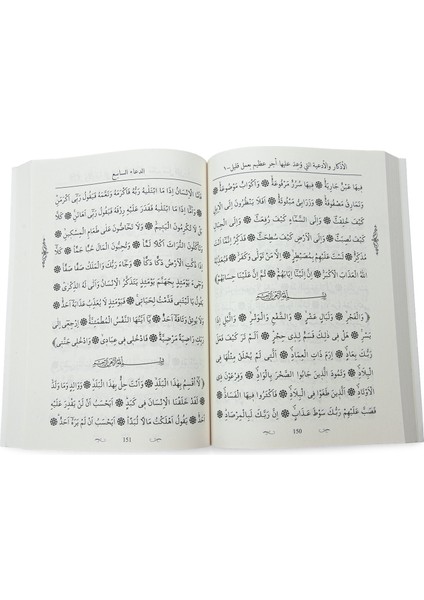 الأذكار والأدعية التي وعد عليها أجر عظيم بعمل قليل
فِيهَا عَيْنٌ جَارِيَةٌ ❁ فِيهَا سُرُرٌ مَرْفُوعَةٌ ❁ وَأَكْوَابٌ مَوْضُوعَةٌ ❁
وَنَمَارِقُ مَصْفُوفَةٌ ❁ وَزَرَابِيُّ مَبْثُوثَةٌ ❁ أَفَلَا يَنْظُرُونَ إِلَى الْإِبِلِ
كَيْفَ خُلِقَتْ ❁ وَإِلَى السَّمَاءِ كَيْفَ رُفِعَتْ ❁ وَإِلَى الْجِبَالِ
كَيْفَ نُصِبَتْ ❁ وَإِلَى الْأَرْضِ كَيْفَ سُطِحَتْ ❁ فَذَكِّرْ إِنَّمَا أَنْتَ
مُذَكِّرٌ ❁ لَسْتَ عَلَيْهِمْ بِمُصَيْطِرٍ ❁ إِلَّا مَنْ تَوَلَّى وَكَفَرَ ❁ فَيُعَذِّبُهُ
اللهُ الْعَذَابَ الْأَكْبَرَ ❁ إِنَّ إِلَيْنَا إِيَابَهُمْ ❁ ثُمَّ إِنَّ عَلَيْنَا حِسَابَهُمْ﴾
بسم الله الرحمن الرحيم
﴿وَالْفَجْرِ ❁ وَلَيَالٍ عَشْرٍ ❁ وَالشَّفْعِ وَالْوَتْرِ ❁ وَالَّيْلِ إِذَا
يَسْرِ ❁ هَلْ فِي ذَلِكَ قَسَمٌ لِذِي حِجْرٍ ❁ أَلَمْ تَرَ كَيْفَ فَعَلَ
رَبُّكَ بِعَادٍ ❁ إِرَمَ ذَاتِ الْعِمَادِ ❁ الَّتِي لَمْ يُخْلَقْ مِثْلُهَا فِي
الْبِلَادِ ❁ وَثَمُودَ الَّذِينَ جَابُوا الصَّخْرَ بِالْوَادِ ❁ وَفِرْعَوْنَ ذِي
الْأَوْتَادِ ❁ الَّذِينَ طَغَوْا فِي الْبِلَادِ ❁ فَأَكْثَرُوا فِيهَا الْفَسَادَ ❁
فَصَبَّ عَلَيْهِمْ رَبُّكَ سَوْطَ عَذَابٍ ❁ إِنَّ رَبَّكَ لَبِالْمِرْصَادِ ❁
150
الدعاء السابع
فَأَمَّا الْإِنْسَانُ إِذَا مَا ابْتَلَيهُ رَبُّهُ فَأَكْرَمَهُ وَنَعَّمَهُ فَيَقُولُ رَبِّي أَكْرَمَنِ
❁ وَأَمَّا إِذَا مَا ابْتَلَيهُ فَقَدَرَ عَلَيْهِ رِزْقَهُ فَيَقُولُ رَبِّي أَهَانَنِ ❁ كَلَّا
بَلْ لَا تُكْرِمُونَ الْيَتِيمَ ❁ وَلَا تَحَاضُّونَ عَلَى طَعَامِ الْمِسْكِينِ ❁
وَتَأْكُلُونَ التُّرَاثَ أَكْلًا لَمًّا ❁ وَتُحِبُّونَ الْمَالَ حُبًّا جَمًّا ❁ كَلَّا
إِذَا دُكَّتِ الْأَرْضُ دَكًّا دَكًّا ❁ وَجَاءَ رَبُّكَ وَالْمَلَكُ صَفًّا صَفًّا ❁
وَجِيءَ يَوْمَئِذٍ بِجَهَنَّمَ يَوْمَئِذٍ يَتَذَكَّرُ الْإِنْسَانُ وَأَنَّى لَهُ الذِّكْرَى ❁
يَقُولُ يَا لَيْتَنِي قَدَّمْتُ لِحَيَاتِي ❁ فَيَوْمَئِذٍ لَا يُعَذِّبُ عَذَابَهُ أَحَدٌ ❁
وَلَا يُوثِقُ وَثَاقَهُ أَحَدٌ ❁ يَا أَيَّتُهَا النَّفْسُ الْمُطْمَئِنَّةُ ❁ ارْجِعِي إِلَى
رَبِّكِ رَاضِيَةً مَرْضِيَّةً ❁ فَادْخُلِي فِي عِبَادِي ❁ وَادْخُلِي جَنَّتِي﴾
بسم الله الرحمن الرحيم
﴿لَا أُقْسِمُ بِهَذَا الْبَلَدِ ❁ وَأَنْتَ حِلٌّ بِهَذَا الْبَلَدِ ❁ وَوَالِدٍ وَمَا وَلَدَ
❁ لَقَدْ خَلَقْنَا الْإِنْسَانَ فِي كَبَدٍ ❁ أَيَحْسَبُ أَنْ لَنْ يَقْدِرَ عَلَيْهِ
أَحَدٌ ❁ يَقُولُ أَهْلَكْتُ مَالًا لُبَدًا ❁ أَيَحْسَبُ أَنْ لَمْ يَرَهُ أَحَدٌ ❁
151